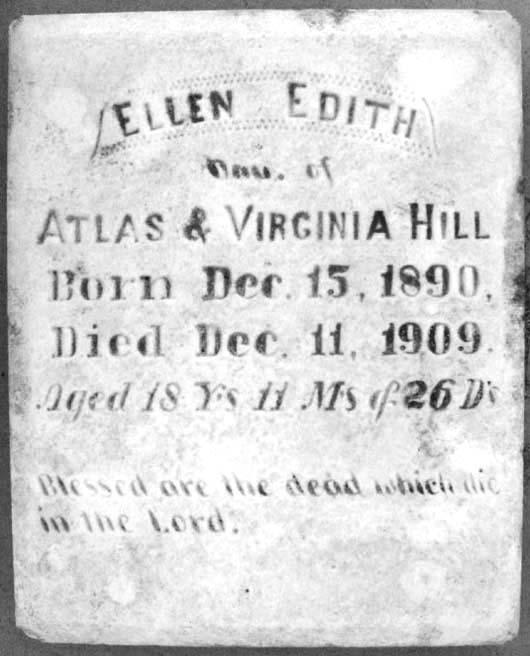 ELLEN EDITH
Dau. of
ATLAS & VIRGINIA HILL
Born Dec. 15, 1890,
Died Dec. 11, 1909.
Aged 18 Ys 11 Ms & 26 D's
Blessed are the dead which die
in the Lord.